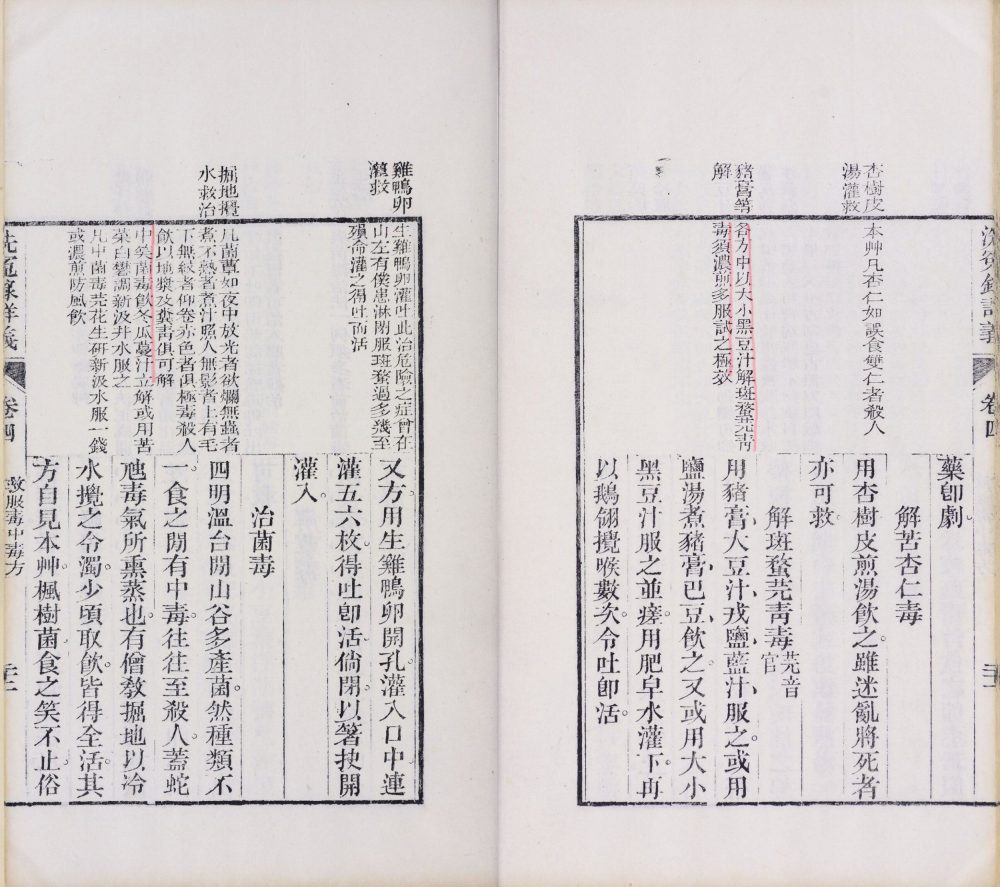 洗冤錄詳義
卷四
藥卽劇
解苦杏仁毒
用杏樹皮煎湯飲之雖迷亂將死者
亦可救
解斑蝥芫青毒芫音
官
用豬膏大豆汁戎鹽藍汁服之或用
鹽湯煮豬膏巴豆飲之又或用大小
黑豆汁服之並瘥用肥皁水灌下再
以鵝翎攪喉數次令吐卽活
杏樹皮
湯灌救
本艸凡杏仁如誤食雙仁者殺人
豬膏等
解
各方中以大小黑豆汁解斑蝥芫靑
毒須濃煎多服試之極效
又方用生雞鴨卵開孔灌入口中連
灌五六枚得吐卽活倘閉以箸抰開
灌入
治菌毒
四明溫台閒山谷多產菌然種類不
一食之閒有中毒往往至殺人蓋蛇
虺毒氣所熏蒸也有僧敎掘地以冷
水攪之令濁少頃取飲皆得全活其
方自見本艸楓樹菌食之笑不止俗
雞鴨卵
灌救
生雞鴨卵灌吐此治危險之症曾在
山左有僕患淋閉服斑蝥過多幾至
殞命灌之得吐而活
掘地攪
水救治
凡菌蕈如夜中放光者欲爛無蟲者
煮不熟者煮汁照人無影者上有毛
下無紋者仰卷赤色者俱極毒殺人
飲以地漿及糞淸俱可解
中笑菌毒飲冬瓜蔓汁立解或用苦
茶白礬調新汲井水服之
凡中菌毒芫花生研新汲水服一錢
或濃煎防風飲
洗冤錄詳義
卷四
救服毒中毒方